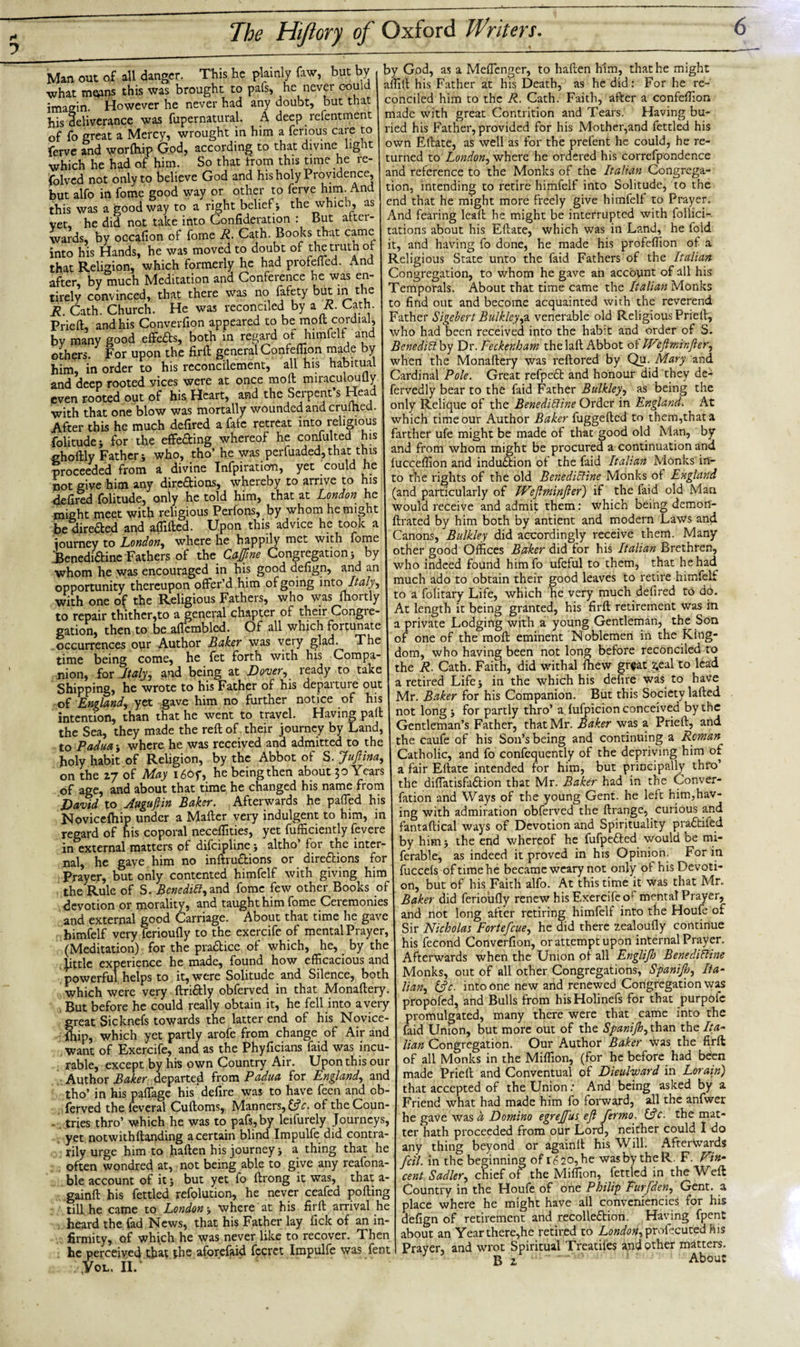 The Hiſtory of Oxford Writers. 6
Man out of all danger. This he plainly ſaw, but by
what means this was brought to paſs, he never could
imagin. However he never had any doubt, but that
his deliverance was ſupernatural. A deep reſentment
of ſo great a Mercy, wrought in him a ſerious care to
ſerve and worſhip God, according to that divine light
which he had of him. So that from this time he re-
ſolved not only to believe God and his holy Providence,
but alſo in ſome good way or other to ſerve him. And
this was a good way to a right belief; the which, as
yet, he did not take into Conſideration : But after-
wards, by occaſion of ſome R. Cath. Books that came
into his Hands, he was moved to doubt of the truth of
that Religion, which formerly he had profeſſed. And
after, by much Meditation and Conference he was en-
tirely convinced, that there was no ſafety but in the
R. Cath. Church. He was reconciled by a R. Cath.
Prieſt, and his Converſion appeared to be moſt cordial,
by many good effects, both in regard of himſelf and
others. For upon the firſt general Confeſſion made by
him, in order to his reconcilement, all his habitual
and deep rooted vices were at once moſt miraculouſly
even rooted out of his Heart, and the Serpent's Head
with that one blow was mortally wounded and cruſhed.
After this he much deſired a ſafe retreat into religious
ſolitude; for the effecting whereof he conſulted his
ghoſtly Father; who, tho' he was perſuaded, that this
proceeded from a divine Inſpiration, yet could he
not give him any directions, whereby to arrive to his
deſired ſolitude, only he told him, that at London he
might meet with religious Perſons, by whom he might
be directed and aſſiſted. Upon this advice he took a
journey to London, where he happily met with ſome
Benedictine Fathers of the Caſſine Congregation; by
whom he was encouraged in his good deſign, and an
opportunity thereupon offer'd him of going into Italy,
with one of the Religious Fathers, who was ſhortly
to repair thither, to a general chapter of their Congre-
gation, then to be aſſembled. Of all which fortunate
occurrences our Author Baker was very glad. The
time being come, he ſet forth with his Compa-
nion, for Italy, and being at Dover, ready to take
Shipping, he wrote to his Father of his departure out
of England, yet gave him no further notice of his
intention, than that he went to travel. Having paſt
the Sea, they made the reſt of their journey by Land,
to Padua; where he was received and admitted to the
holy habit of Religion, by the Abbot of S. Juſtina,
on the 27 of May 1605, he being then about 30 Years
of age, and about that time he changed his name from
David to Auguſtin Baker. Afterwards he paſſed his
Noviceſhip under a Maſter very indulgent to him, in
regard of his coporal neceſſities, yet ſufficiently ſevere
in external matters of diſcipline; altho' for the inter-
nal, he gave him no inſtructions or directions for
Prayer, but only contented himſelf with giving him
the Rule of S. Benedict, and ſome few other Books of
devotion or morality, and taught him ſome Ceremonies
and external good Carriage. About that time he gave
himſelf very ſeriouſly to the exerciſe of mental Prayer,
(Meditation) for the practice of which, he, by the
little experience he made, found how efficacious and
powerful helps to it, were Solitude and Silence, both
which were very ſtrictly obſerved in that Monaſtery.
But before he could really obtain it, he fell into a very
great Sickneſs towards the latter end of his Novice-
ſhip, which yet partly aroſe from change of Air and
want of Exerciſe, and as the Phyſicians ſaid was incu-
rable, except by his own Country Air. Upon this our
Author Baker departed from Padua for England, and
tho' in his paſſage his deſire was to have ſeen and ob-
ſerved the ſeveral Cuſtoms, Manners, &c. of the Coun-
tries thro' which he was to paſs, by leiſurely Journeys,
yet notwithſtanding a certain blind Impulſe did contra-
rily urge him to haſten his journey; a thing that he
often wondred at, not being able to give any reaſona-
ble account of it; but yet ſo ſtrong it was, that a-
gainſt his ſettled reſolution, he never ceaſed poſting
till he came to London; where at his firſt arrival he
heard the ſad News, that his Father lay ſick of an in-
firmity, of which he was never like to recover. Then
he perceived that the aforeſaid ſecret Impulſe was ſent
Vol. II.
by God, as a Meſſenger, to haſten him, that he might
aſſiſt his Father at his Death, as he did: For he re-
conciled him to the R. Cath. Faith, after a confeſſion
made with great Contrition and Tears. Having bu-
ried his Father, provided for his Mother, and ſettled his
own Eſtate, as well as for the preſent he could, he re-
turned to London, where he ordered his correſpondence
and reference to the Monks of the Italian Congrega-
tion, intending to retire himſelf into Solitude, to the
end that he might more freely give himſelf to Prayer.
And fearing leaſt he might be interrupted with ſollici-
tations about his Eſtate, which was in Land, he ſold
it, and having ſo done, he made his profeſſion of a
Religious State unto the ſaid Fathers of the Italian
Congregation, to whom he gave an account of all his
Temporals. About that time came the Italian Monks
to find out and become acquainted with the reverend
Father Sigebert Bulkley, a venerable old Religious Prieſt,
who had been received into the habit and order of S.
Benedict by Dr. Feckenham the laſt Abbot of Weſtminſter,
when the Monaſtery was reſtored by Qu. Mary and
Cardinal Pole. Great reſpect and honour did they de-
ſervedly bear to the ſaid Father Bulkley, as being the
only Relique of the Benedictine Order in England. At
which time our Author Baker ſuggeſted to them, that a
farther uſe might be made of that good old Man, by
and from whom might be procured a continuation and
ſucceſſion and induction of the ſaid Italian Monks in-
to the rights of the old Benedictine Monks of England
(and particularly of Weſtminſter) if the ſaid old Man
would receive and admit them: which being demon-
ſtrated by him both by antient and modern Laws and
Canons, Bulkley did accordingly receive them. Many
other good Offices Baker did for his Italian Brethren,
who indeed found him ſo uſeful to them, that he had
much ado to obtain their good leaves to retire himſelf
to a ſolitary Life, which he very much deſired to do.
At length it being granted, his firſt retirement was in
a private Lodging with a young Gentleman, the Son
of one of the moſt eminent Noblemen in the King-
dom, who having been not long before reconciled to
the R. Cath. Faith, did withal ſhew great zeal to lead
a retired Life; in the which his deſire was to have
Mr. Baker for his Companion. But this Society laſted
not long; for partly thro' a ſuſpicion conceived by the
Gentleman's Father, that Mr. Baker was a Prieſt, and
the cauſe of his Son's being and continuing a Roman
Catholic, and ſo conſequently of the depriving him of
a fair Eſtate intended for him, but principally thro'
the diſſatisfaction that Mr. Baker had in the Conver-
ſation and Ways of the young Gent. he left him, hav-
ing with admiration obſerved the ſtrange, curious and
fantaſtical ways of Devotion and Spirituality practiſed
by him; the end whereof he ſuſpected would be mi-
ſerable, as indeed it proved in his Opinion. For in
ſucceſs of time he became weary not only of his Devoti-
on, but of his Faith alſo. At this time it was that Mr.
Baker did ſeriouſly renew his Exerciſe of mental Prayer,
and not long after retiring himſelf into the Houſe of
Sir Nicholas Forteſcue, he did there zealouſly continue
his ſecond Converſion, or attempt upon internal Prayer.
Afterwards when the Union of all Engliſh Benedictine
Monks, out of all other Congregations, Spaniſh, Ita-
lian, &c. into one new and renewed Congregation was
propoſed, and Bulls from his Holineſs for that purpoſe
promulgated, many there were that came into the
ſaid Union, but more out of the Spaniſh, than the Ita-
lian Congregation. Our Author Baker was the firſt
of all Monks in the Miſſion, (for he before had been
made Prieſt and Conventual of Dieulward in Lorain)
that accepted of the Union: And being asked by a
Friend what had made him ſo forward, all the anſwer
he gave was à Domino egreſſus eſt ſermo. &c. the mat-
ter hath proceeded from our Lord, neither could I do
any thing beyond or againſt his Will. Afterwards
ſcil. in the beginning of 1620, he was by the R. F. Vin-
cent Sadler, chief of the Miſſion, ſettled in the Weſt
Country in the Houſe of one Philip Furſden, Gent. a
place where he might have all conveniencies for his
deſign of retirement and recollection. Having ſpent
about an Year there, he retired to London, proſecuted his
Prayer, and wrot Spiritual Treatiſes and other matters.
B 2 About